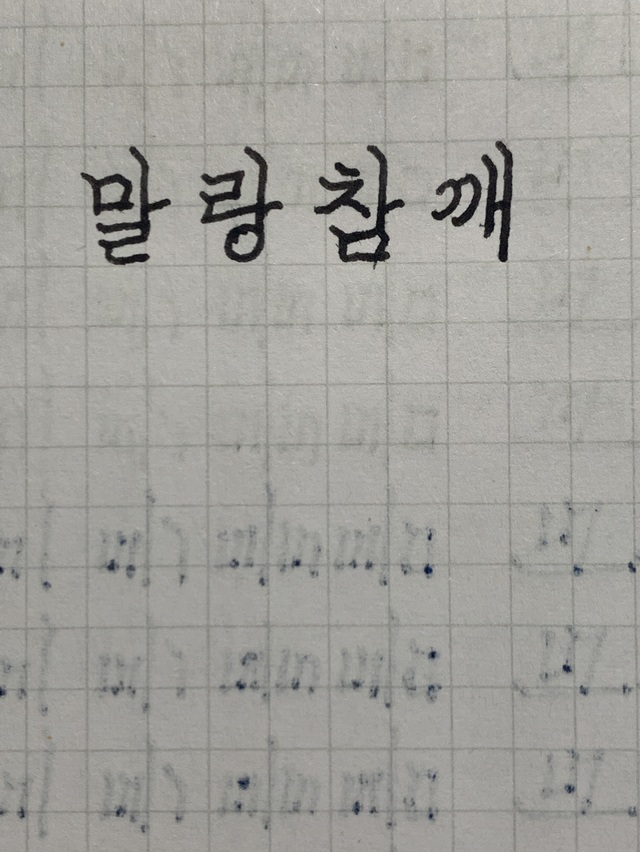 말랑참깨